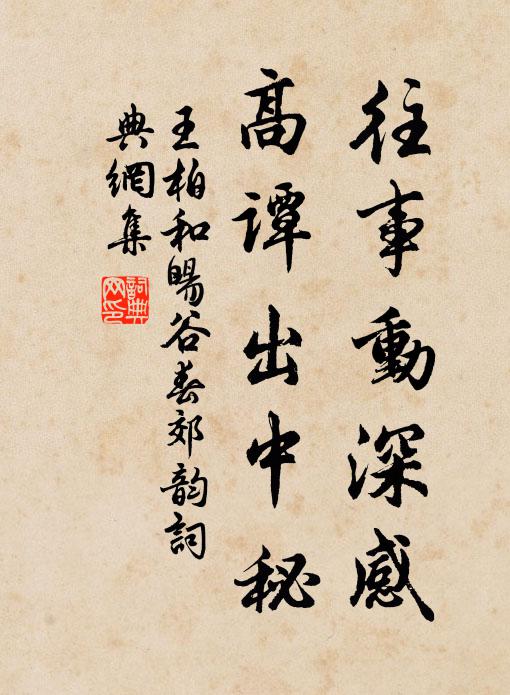 往事動深感
高譚出中秘
王柏和暘谷春郊韵詞
典網集
詞典
网印